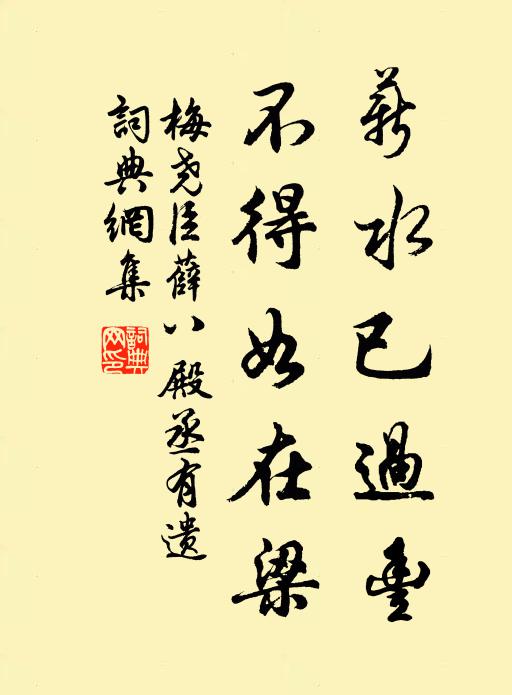 薪水已過豊
不得如在梁
梅尧臣薛八殿丞有遗
詞典網集
詞典網印